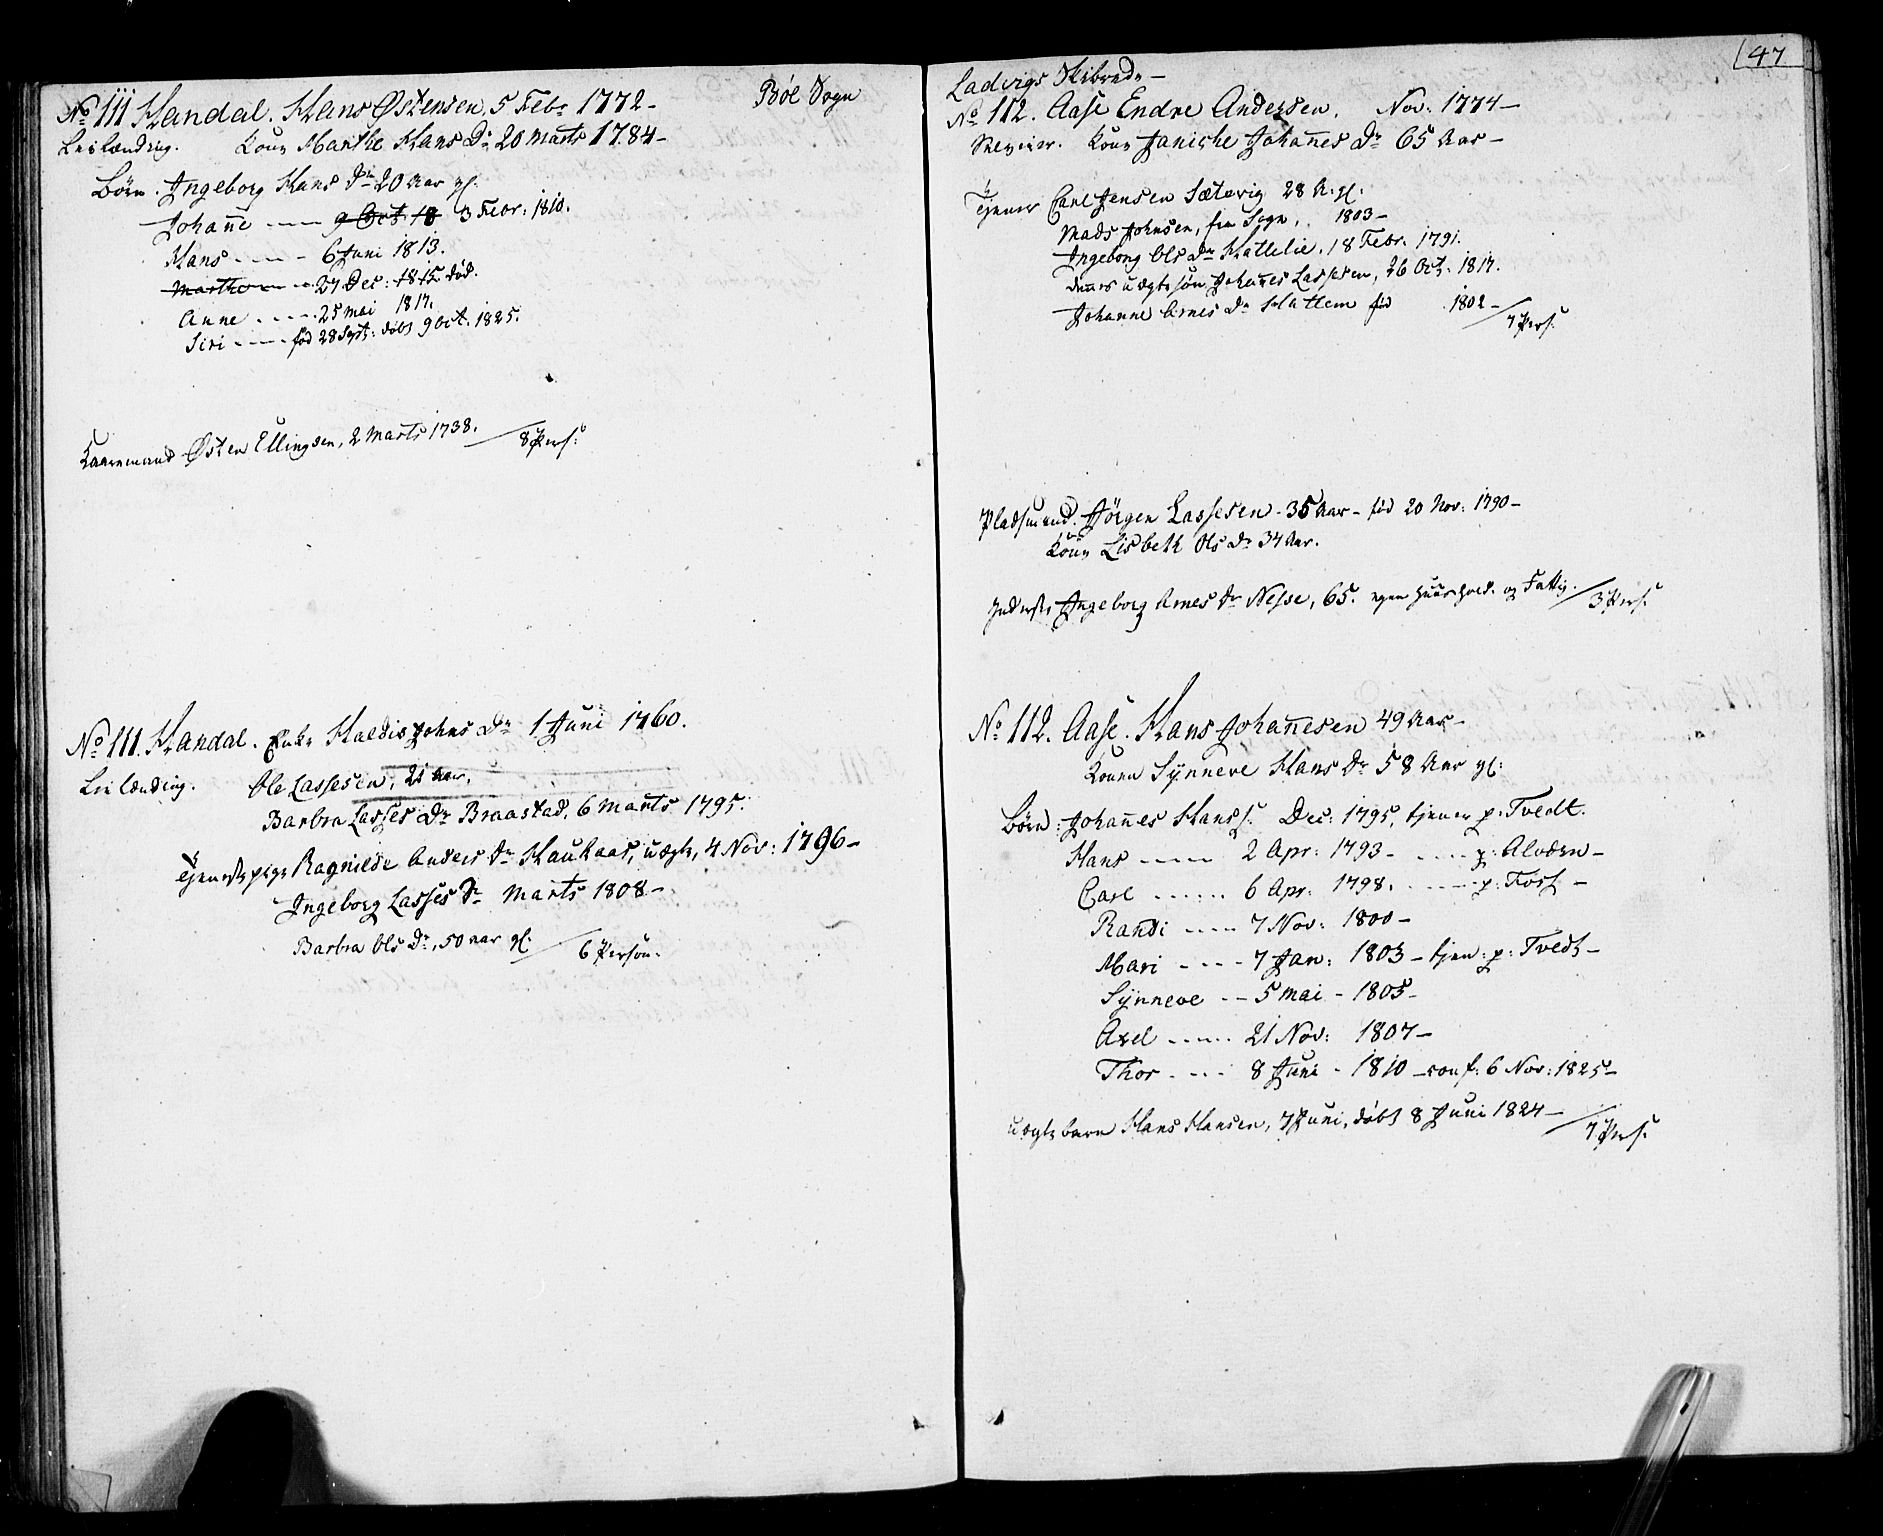 No 111 Handal. Hans Østensen, 5 Febr 1772 -
Böe Sogn
Leilænding. Kone Marthe Hans Dr 20 Marts 1784 -
Börn. Ingeborg Hans Dr 20 Aar gl:
Johañe ---- 9 Oct 18 3 Febr: 1810.
Hans ---- 6 Juni 1813.
Marthe --- 27 Dec: 1815 död.
Anne ---- 25 Mai 1817.
Siri ---- född 28 Sept: döbt 9 Oct. 1825.
Kaarmand Østen Ellingsen, 2 Marts 1738. / 8 Pers:
No 111. Handal. Enke Haldis Johns Dr 1 Juni 1760.
Leilænding. Ole Lassesen, 21 Aar.
Barbra Lasses Dr Braastad, 6 Marts 1795.
Tjenestepige Ragnilde Anders Dr Haukaas, uægte, 4 Nov: 1796 -
Ingeborg Lasses Dr Marts 1808 -
Barbra Ols Dr, 50 aar gl: / 6 Person.
47
Ladvigs Skibrede -
No 112. Aase Endre Andersen. Nov: 1774 -
Kone Janiche Johañes Dr 65 Aar -
Tjener Carl Jensen Sætevig 28 A. gl:
Mads Johnsen, fra Sogn, 1803 -
Ingeborg Ols Dr Hatlelie, 18 Febr. 1791.
dennes uægte sön Johañes Lassesen, 26 Oct. 1817.
Johanne Arnes Dr Hatlem föd 1802 - / 7 Pers:
Pladsmand. Jörgen Lassesen - 35 Aar - föd 20 Nov: 1790 -
Kone Lisbeth Ols Dr 34 Aar.
Inderste Ingeborg Arnes Dr Nesse, 65. egen Huushold. og Fattig. / 3 Pers:
No 112. Aase. Hans Johañesen 49 Aar -
Konen Synneve Hans Dr 58 Aar gl:
Börn: Johañes Hanss. Dec: 1795, tjener p: Tvedt.
Hans ---- 2 Apr: 1793 - ---- p: Alvöen -
Carl ---- 6 Apr: 1798. ---- p: Forss -
Randi ---- 7 Nov: 1800 -
Mari ---- 7 Jan: 1803 - tjen: p: Tvedt -
Synneve -- 5 Mai - 1805 -
Axel ---- 21 Nov: 1807 -
Thor ---- 8 Juni - 1810 - conf: 6 Nov: 1825 -
uægte barn Hans Hansen, 7 Juni, döbt 8 Juni 1824 - / 7 Pers: